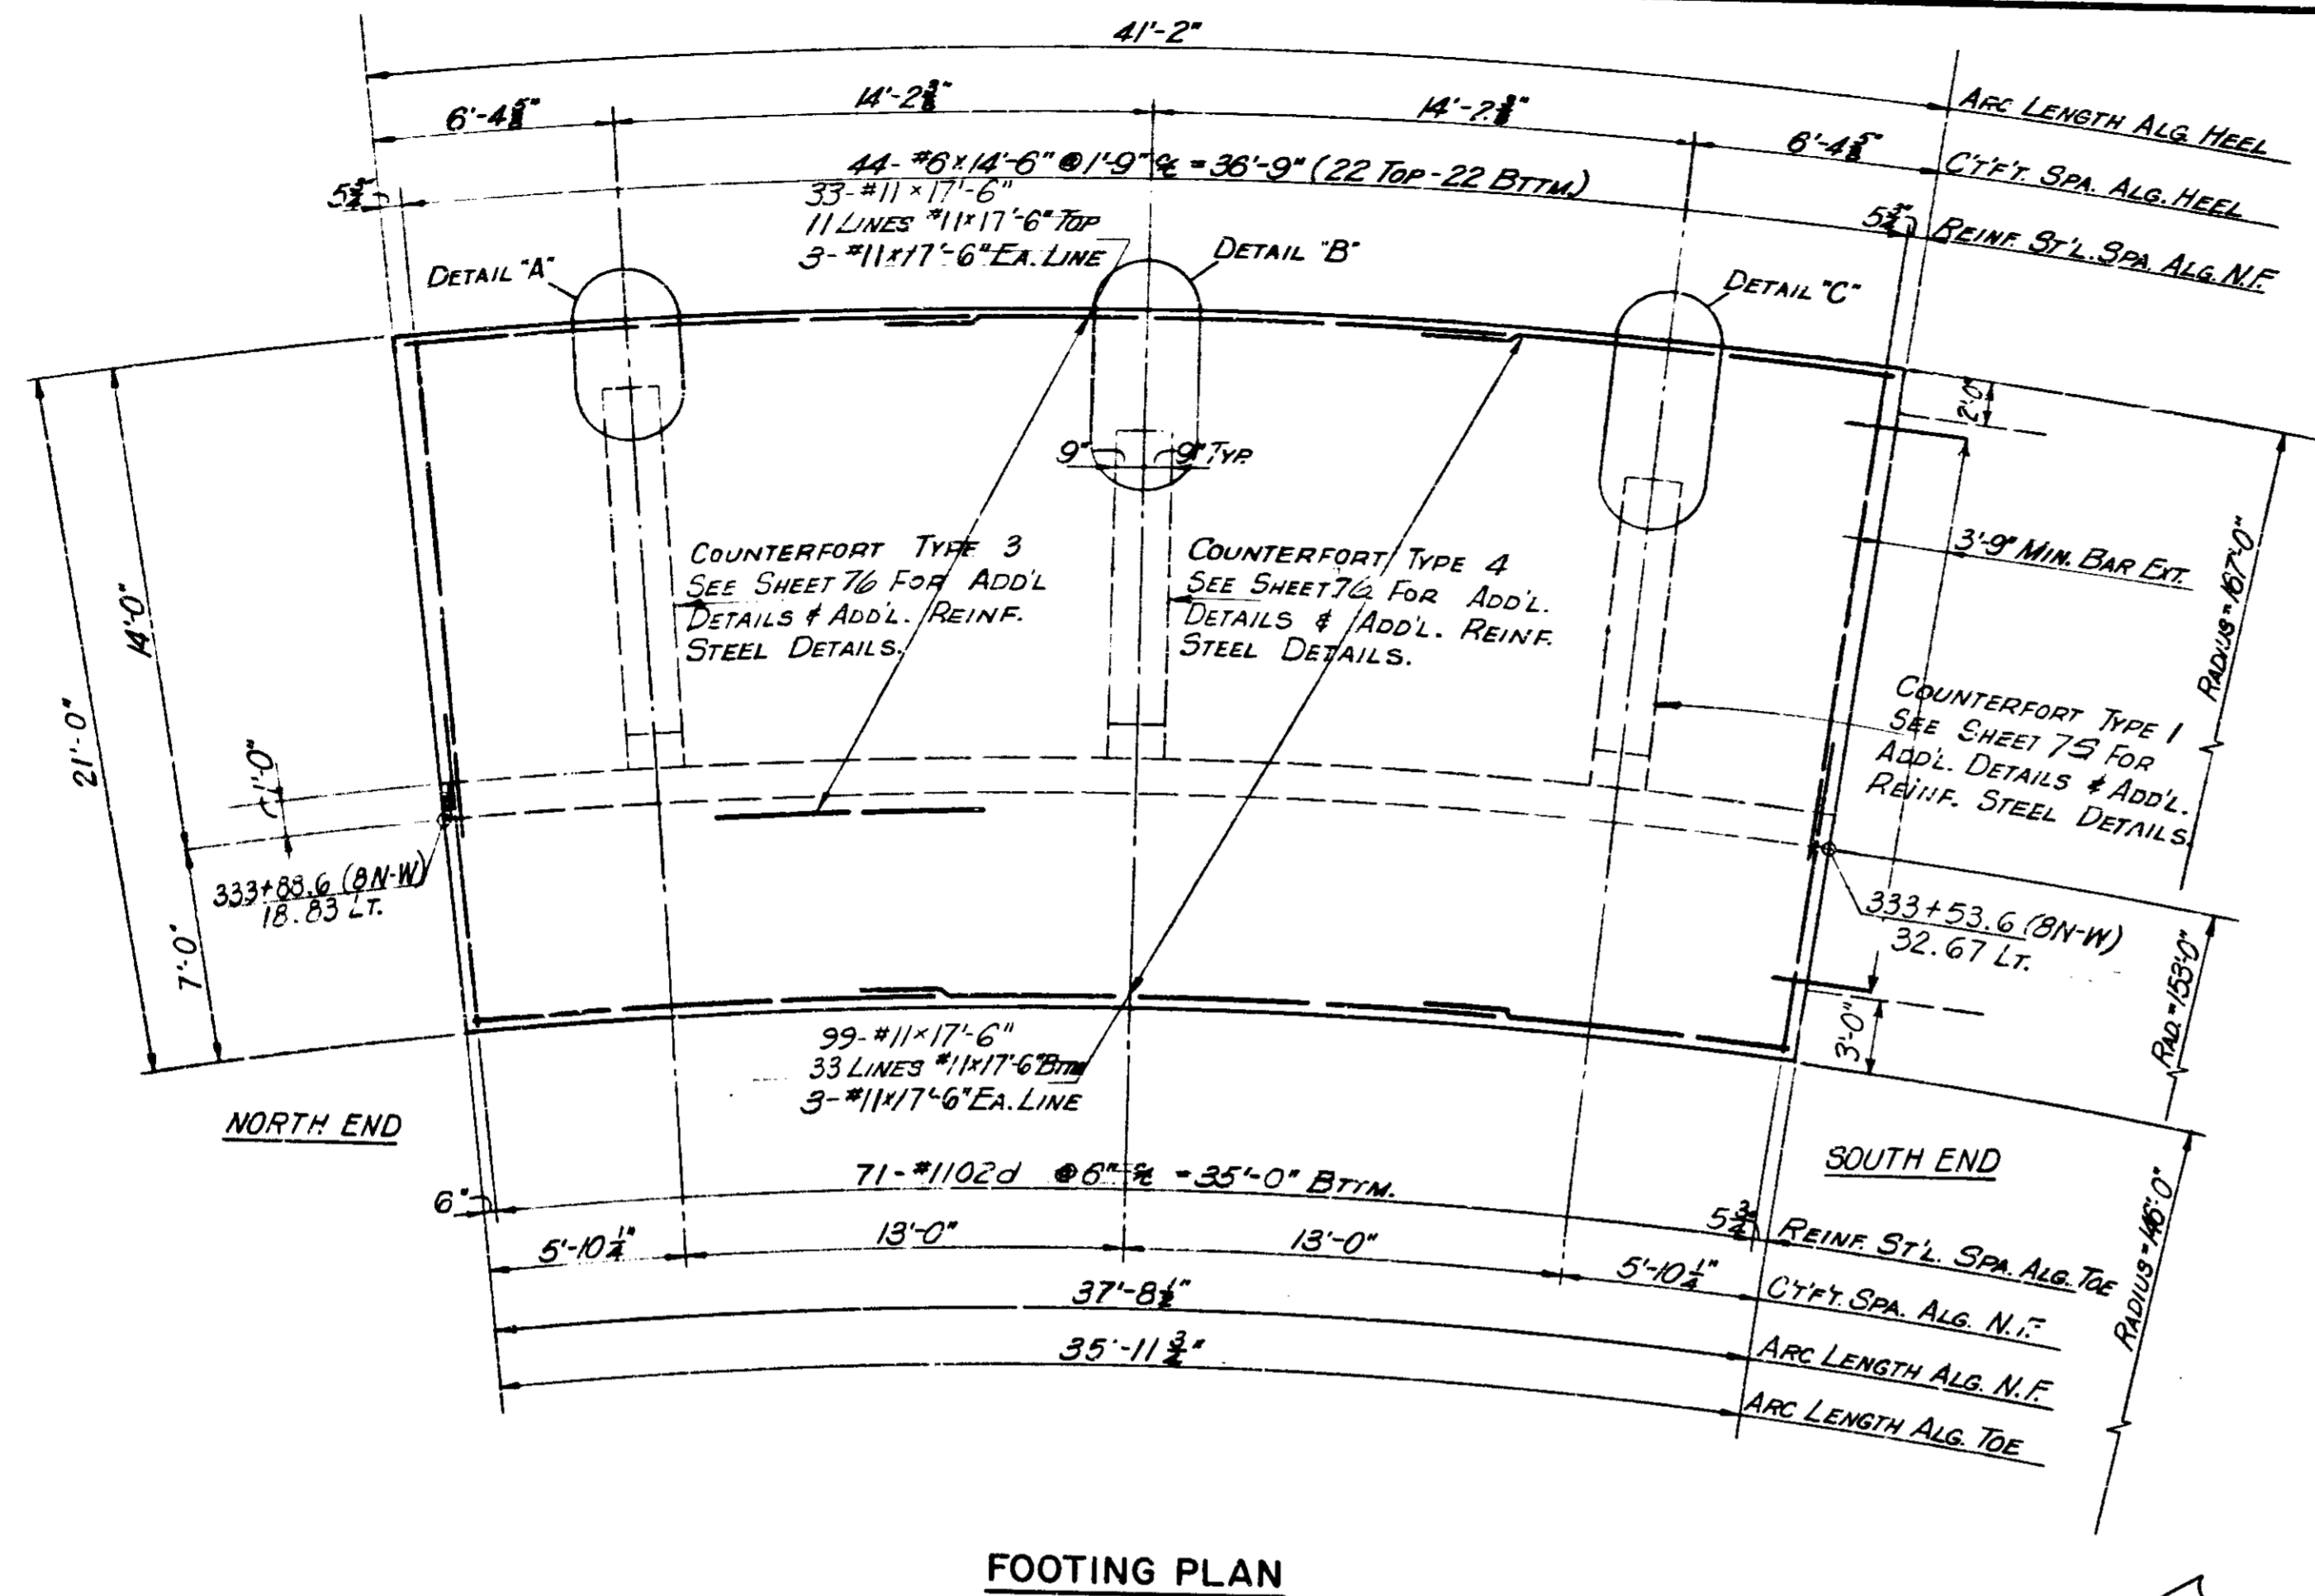 41'-2"
ARC LENGTH ALG. HEEL
6'-4 5/8"
14'-2 3/8"
14'-2 3/8"
6'-4 5/8"
C'T'F'T. SPA. ALG. HEEL
5 3/4"
44-#6x14'-6" @ 1'-9" ℄ = 36'-9" (22 TOP-22 BTTM.)
5 3/4"
REINF. ST'L. SPA. ALG. N.F.
33-#11 x 17'-6"
11 LINES #11x17'-6" TOP
3-#11x17'-6" EA. LINE
DETAIL "A"
DETAIL "B"
DETAIL "C"
2'-0"
9"
9" TYP.
COUNTERFORT TYPE 3
SEE SHEET 76 FOR ADD'L
DETAILS & ADD'L. REINF.
STEEL DETAILS.
COUNTERFORT TYPE 4
SEE SHEET 76 FOR ADD'L.
DETAILS & ADD'L. REINF.
STEEL DETAILS.
3'-9" MIN. BAR EXT.
RADIUS=167'-0"
COUNTERFORT TYPE 1
SEE SHEET 75 FOR
ADD'L. DETAILS & ADD'L.
REINF. STEEL DETAILS.
14'-0"
21'-0"
1'-0"
7'-0"
333+88.6 (8N-W)
18.83 LT.
333+53.6 (8N-W)
32.67 LT.
RAD.=153'-0"
3'-0"
99-#11x17'-6"
33 LINES #11x17'-6" BTTM
3-#11x17'-6" EA. LINE
NORTH END
SOUTH END
71-#1102d @ 6" ℄ = 35'-0" BTTM.
6"
5 3/4"
REINF. ST'L. SPA. ALG. TOE
5'-10 1/4"
13'-0"
13'-0"
5'-10 1/4"
C'T'F'T. SPA. ALG. N.F.
37'-8 1/2"
ARC LENGTH ALG. N.F.
35'-11 3/4"
ARC LENGTH ALG. TOE
RADIUS=146'-0"
FOOTING PLAN